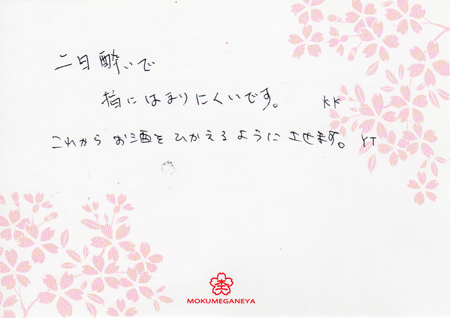 二日酔いで
指にはまりにくいです。 KK
これから お酒を ひかえるように させます。 YT
MOKUMEGANEYA